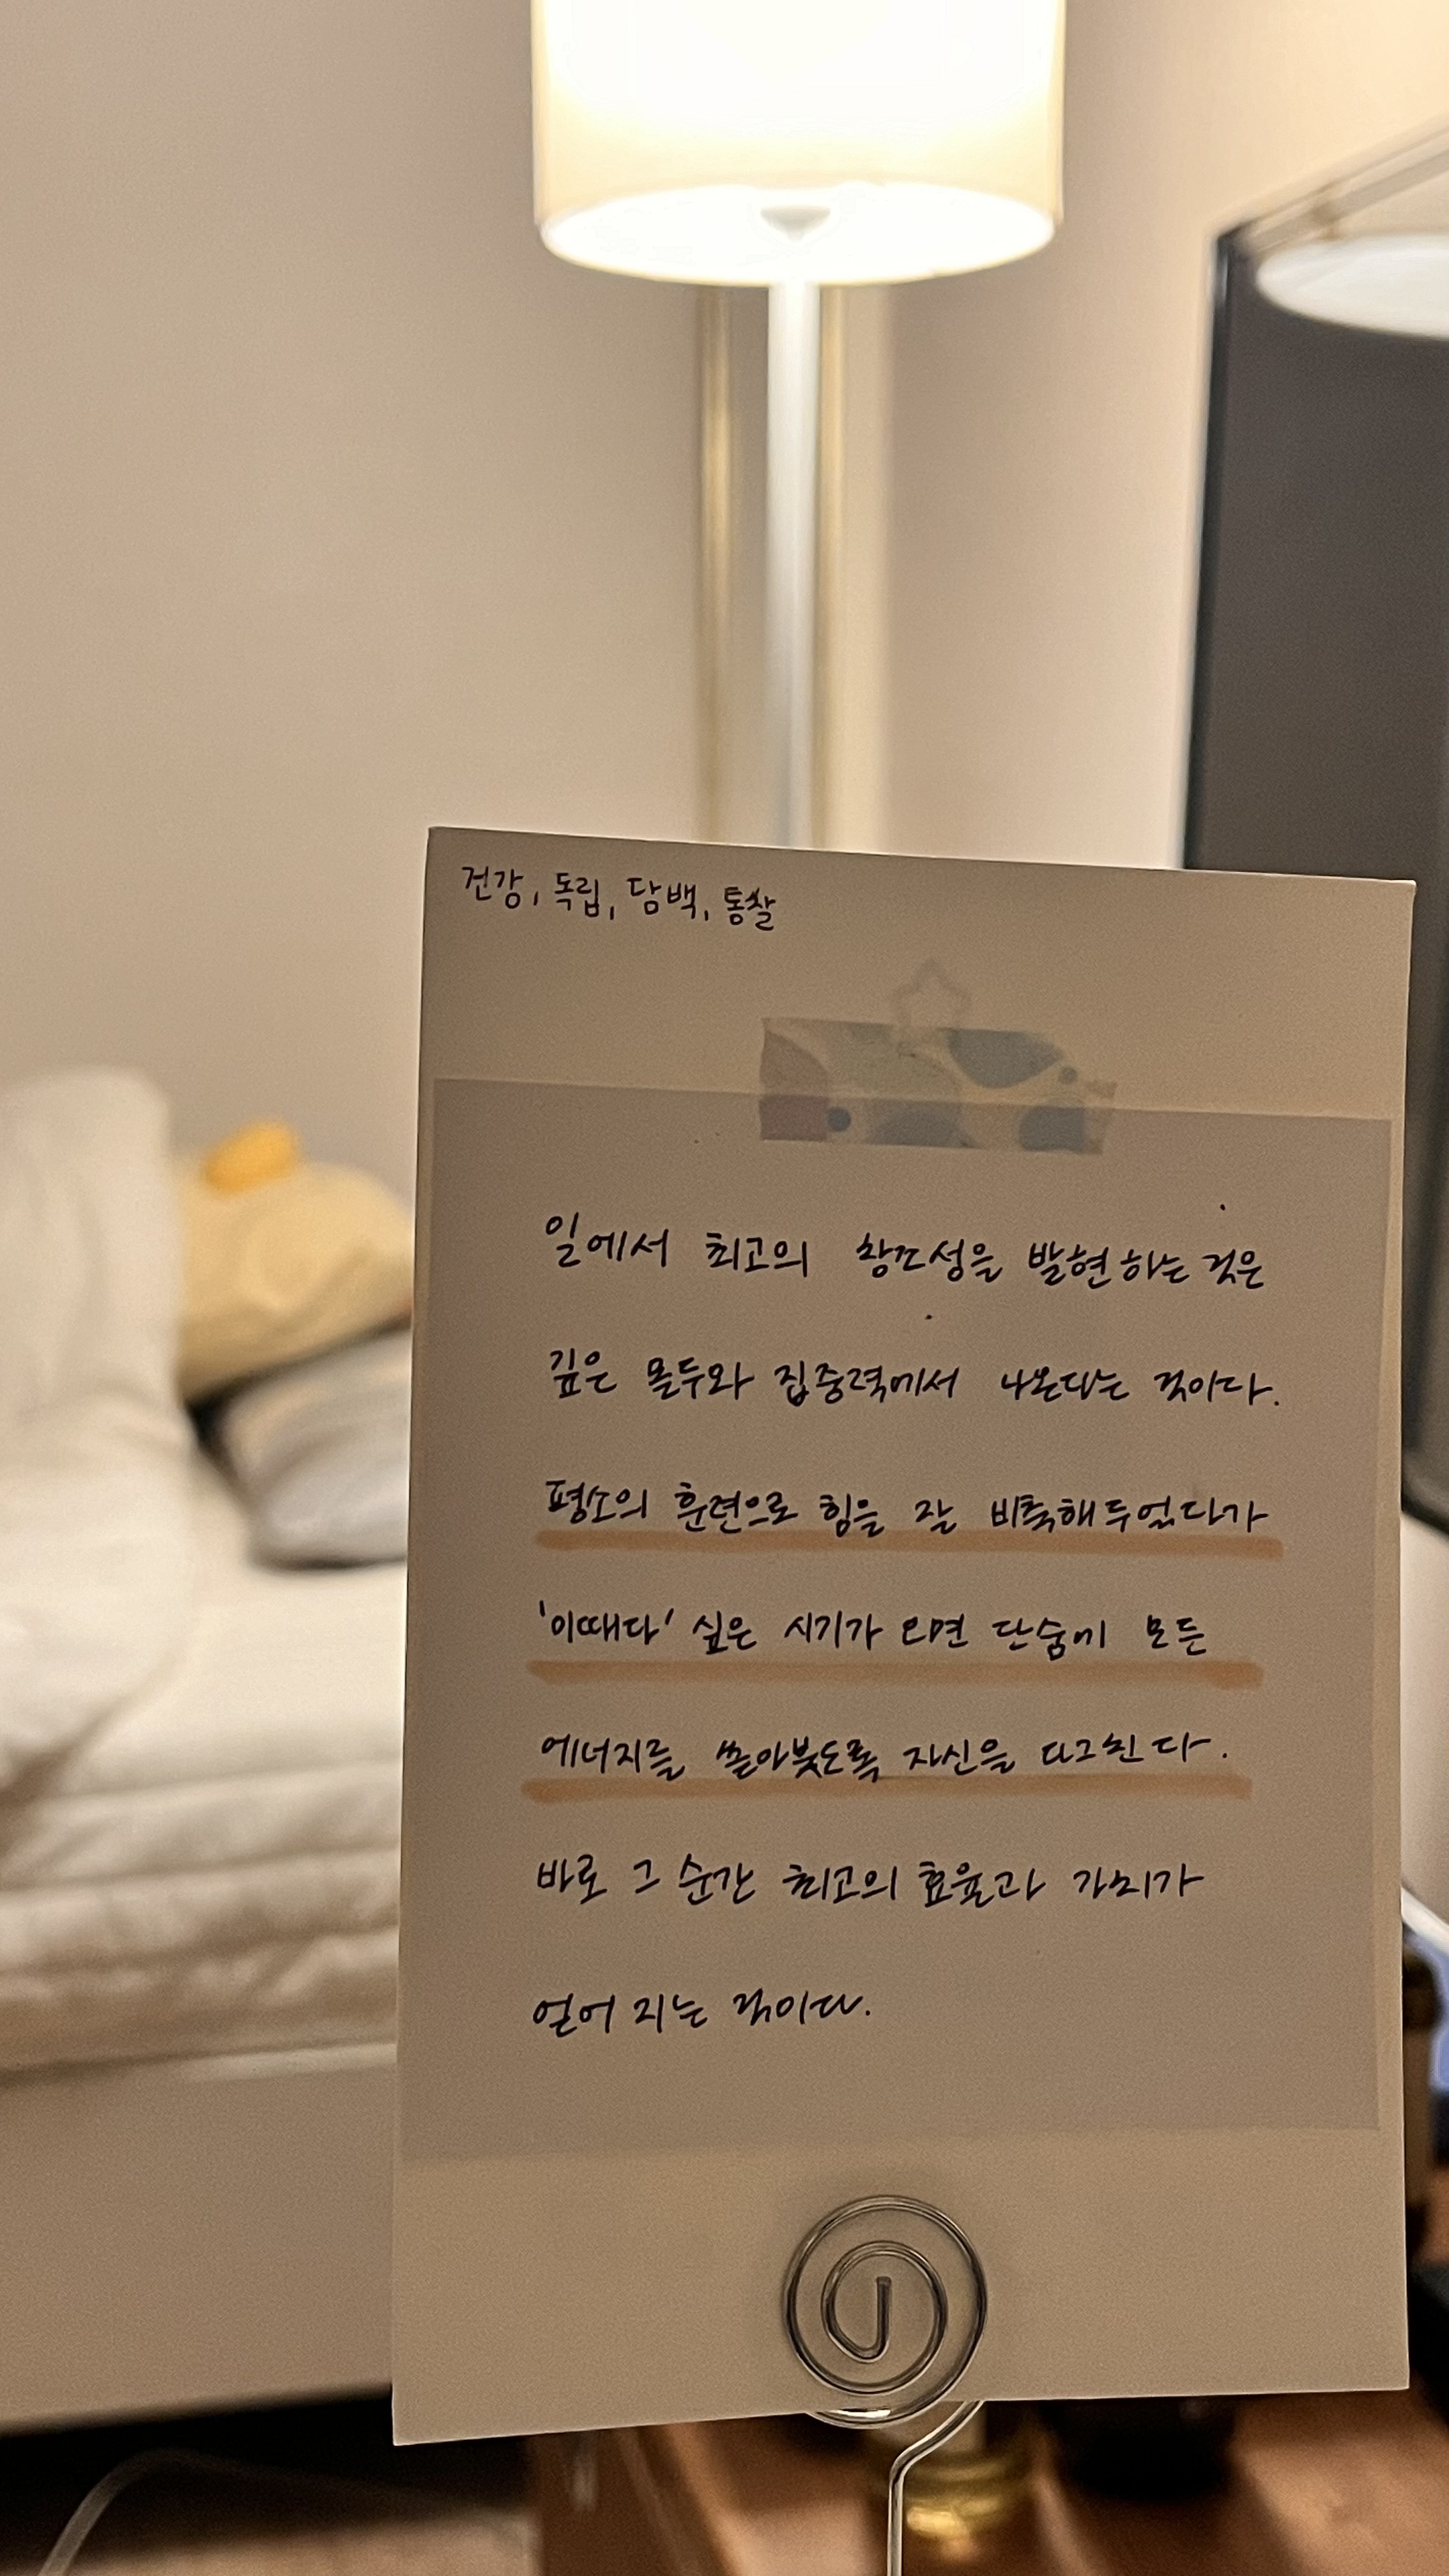 건강, 독립, 담백, 통찰
일에서 최고의 창조성을 발현하는 것은
깊은 몰두와 집중력에서 나온다는 것이다.
평소의 훈련으로 힘을 잘 비축해두었다가
'이때다' 싶은 시기가 오면 단숨에 모든
에너지를 쏟아붓도록 자신을 다그친다.
바로 그 순간 최고의 효율과 가치가
얻어 지는 것이다.